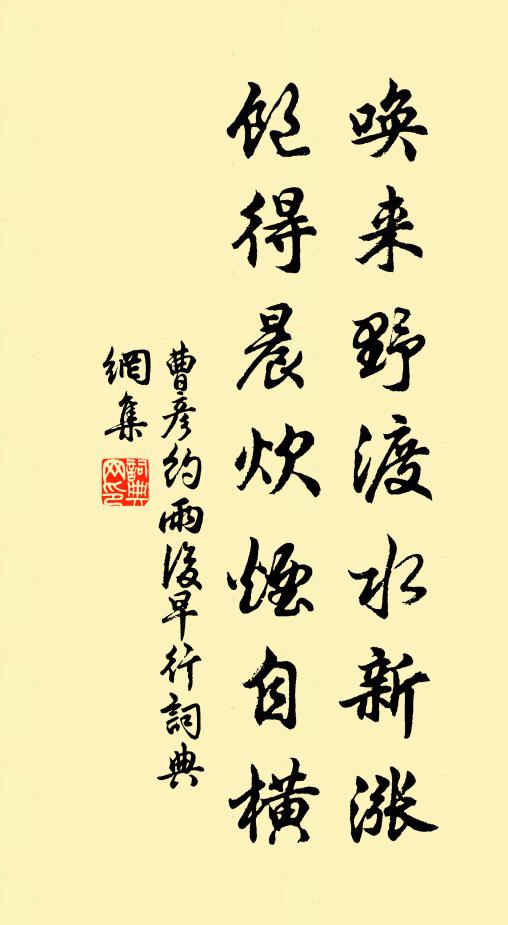 唤来野渡水新涨
饱得晨炊烟自横
曹彦约雨後早行词典
網集
詞典
网印